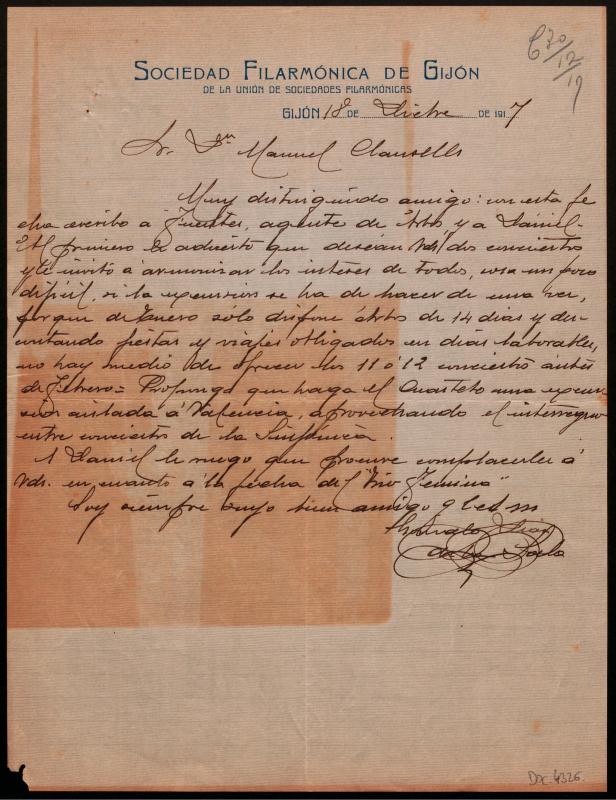 C 30/12/17
SOCIEDAD FILARMÓNICA DE GIJÓN
DE LA UNIÓN DE SOCIEDADES FILARMÓNICAS
GIJÓN 18 DE Dicbre DE 1917
Sr. Dn Manuel Clausells
Muy distinguido amigo: con esta fe
cha escribo a Fuentes, agente de Arbós, y a Daniel.
Al primero le advierto que desean Vds dos conciertos
y le invito á armonizar los interes de todos, cosa un poco
difícil, si la excursion se ha de hacer de una vez,
porque de Enero sólo dispone Arbós de 14 dias y des-
contando fiestas y viajes obligados en dias laborables,
no hay medio de ofrecer los 11 ó 12 conciertos ántes
de Febrero = Propongo que haga el Cuarteto una excur
sion aislada á Valencia, aprovechando el interregno
entre conciertos de la Sinfónica.
A Daniel le ruego que procure complacerles á
Vds. en cuanto á la fecha del "Trio Femina"
Soy siempre suyo buen amigo q b s m
de la
DOC. 4326.